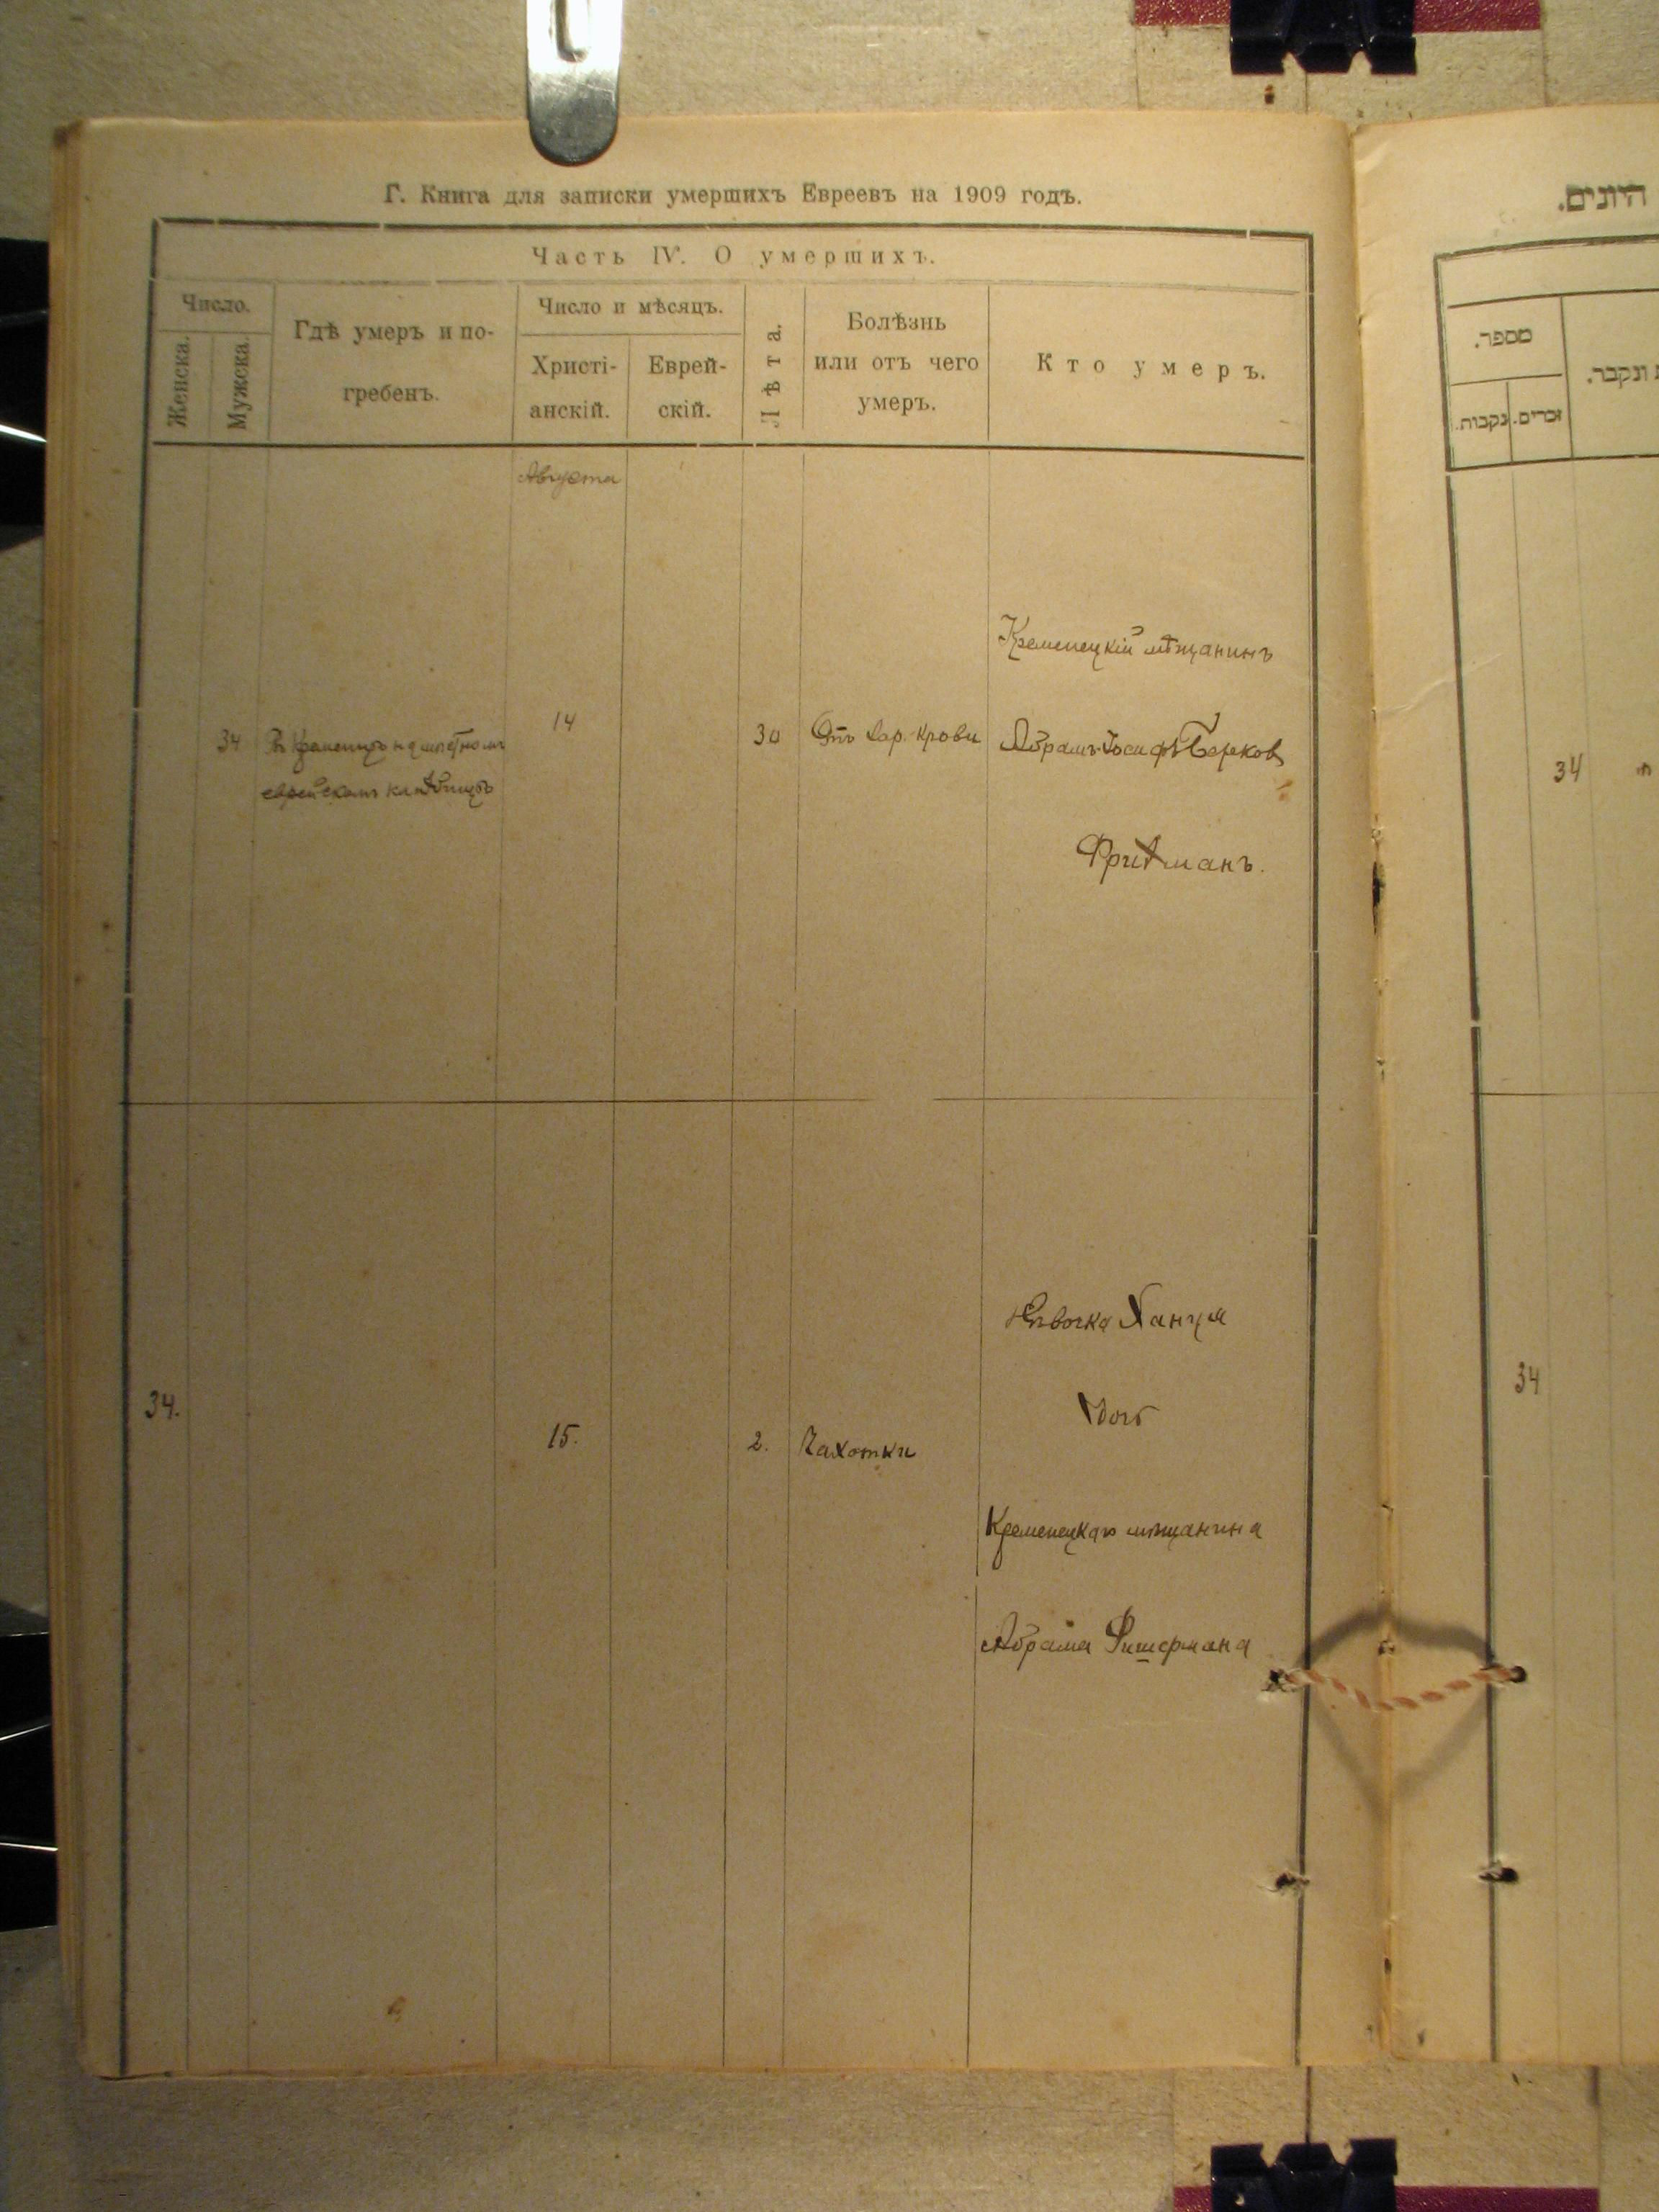 Г. Книга для записки умершихъ Евреевъ на 1909 годъ.
Часть IV. О умершихъ.
Число.
Женска.
Мужска.
Гдѣ умеръ и по-
гребенъ.
Число и мѣсяцъ.
Христі-
анскій.
Еврей-
скій.
Лѣта.
Болѣзнь
или отъ чего
умеръ.
Кто умеръ.
Августа
Кременецкій мѣщанинъ
34
Въ Кременцѣ на мѣстномъ
еврейскомъ кладбищѣ
14
30
Отъ зар. крови
Абрамъ-Іосифъ Берков
Фридманъ.
34.
15.
2.
Чахотки
Дѣвочка Ханця
дочь
Кременецкаго мѣщанина
Абрама Фишермана
היונים.
מספר.
זכרים.
נקבות.
ונקבר.
34
34